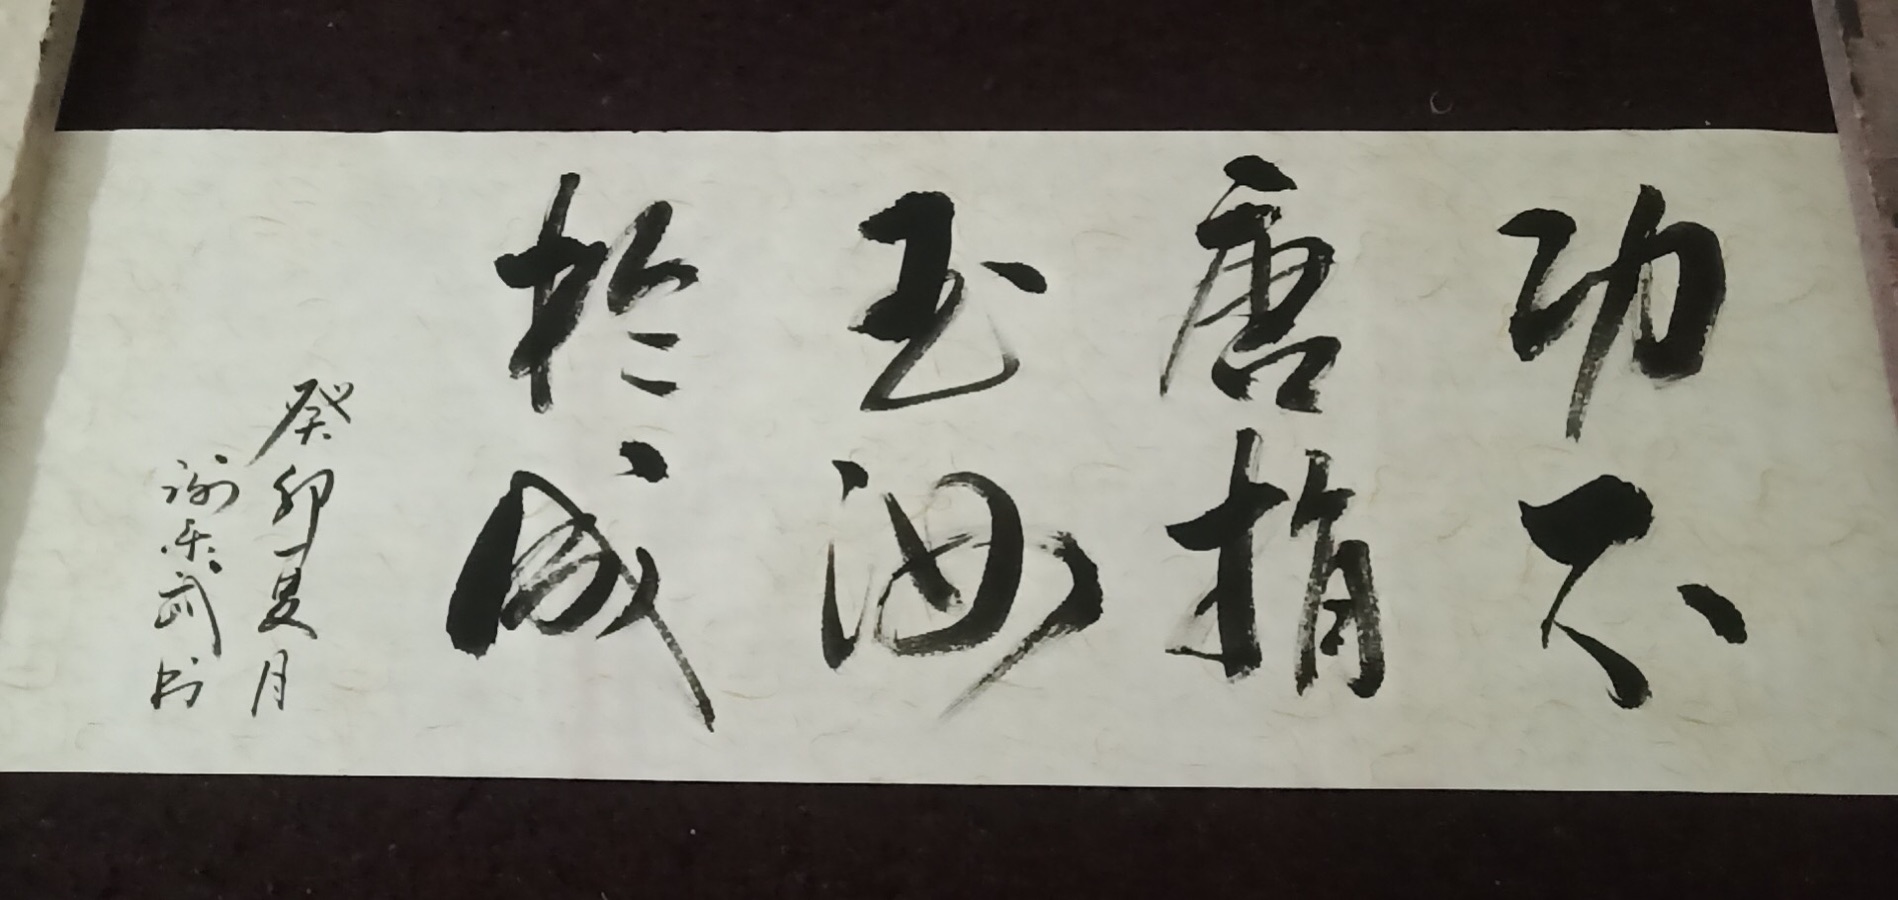 功不
唐捐
玉汝
於成
癸卯夏月
谢乐武书